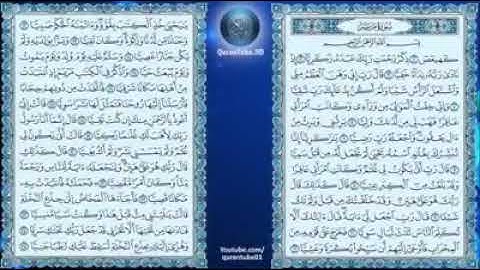 سورة مريم
بسم الله الرحمن الرحيم
كهيعص ① ذكر رحمت ربك عبده زكريا ② إذ
نادى ربه نداء خفيا ③ قال رب إني وهن العظم مني
واشتعل الرأس شيبا ولم أكن بدعائك رب شقيا ④
وإني خفت الموالي من وراءي وكانت امرأتي عاقرا
فهب لي من لدنك وليا ⑤ يرثني ويرث من
ءال يعقوب واجعله رب رضيا ⑥ يزكريا إنا
نبشرك بغلم اسمه يحيى لم نجعل له من قبل سميا
⑦ قال رب أنى يكون لي غلم وكانت امرأتي عاقرا
وقد بلغت من الكبر عتيا ⑧ قال كذلك قال
ربك هو علي هين وقد خلقتك من قبل ولم تك
شيئا ⑨ قال رب اجعل لي ءاية قال ءايتك ألا
تكلم الناس ثلث ليال سويا ⑩ فخرج على قومه
من المحراب فأوحى إليهم أن سبحوا بكرة وعشيا ⑪
ييحيى خذ الكتب بقوة وءاتينه الحكم صبيا ⑫
وحنانا من لدنا وزكوة وكان تقيا ⑬ وبرا بولديه ولم
يكن جبارا عصيا ⑭ وسلم عليه يوم ولد ويوم يموت
ويوم يبعث حيا ⑮ واذكر في الكتب مريم إذ انتبذت
من أهلها مكانا شرقيا ⑯ فاتخذت من دونهم حجابا
فأرسلنا إليها روحنا فتمثل لها بشرا سويا ⑰ قالت إني
أعوذ بالرحمن منك إن كنت تقيا ⑱ قال إنما أنا رسول
ربك لأهب لك غلما زكيا ⑲ قالت أنى يكون لي
غلم ولم يمسسني بشر ولم أك بغيا ⑳ قال كذلك
قال ربك هو علي هين ولنجعله ءاية للناس ورحمة
منا وكان أمرا مقضيا ㉑ فحملته فانتبذت به
مكانا قصيا ㉒ فأجاءها المخاض إلى جذع النخلة
قالت يليتني مت قبل هذا وكنت نسيا منسيا ㉓
فنادىها من تحتها ألا تحزني قد جعل ربك تحتك سريا ㉔
وهزي إليك بجذع النخلة تسقط عليك رطبا جنيا ㉕
QuranTube.3D
Youtube.com/
qurantube01